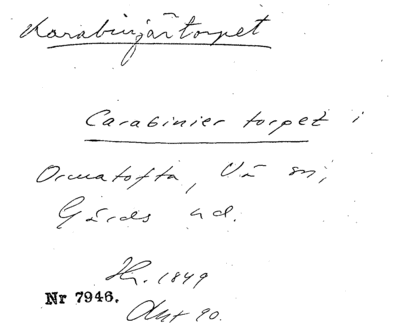 Karabinjärtorpet
Carabinier torpet i
Ormatofta, Vä sn,
Gärds hd.
Hr. 1849
Nr 7946.
Akt 90.